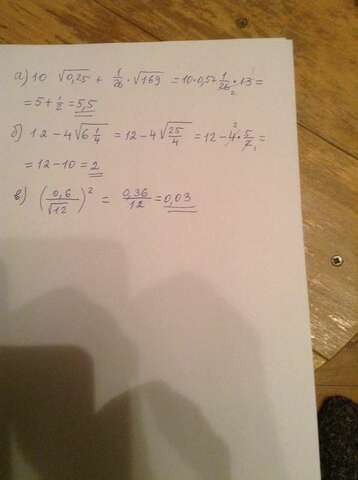 а) 10 √0,25 + 1/26 · √169 = 10·0,5 + 1/26 · 13 =
= 5 + 1/2 = 5,5
б) 12 - 4√6 1/4 = 12 - 4√25/4 = 12 - 4 · 5/2 =
= 12 - 10 = 2
в) (0,6/√12)² = 0,36/12 = 0,03